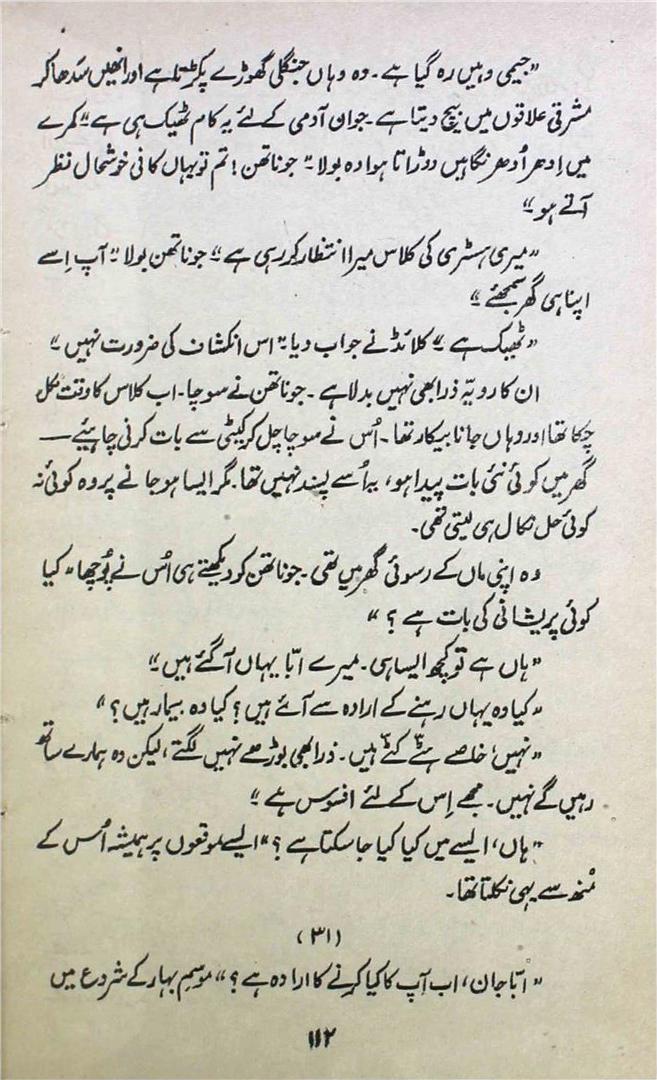 "جیمی وہیں رہ گیا ہے۔ وہ وہاں جنگلی گھوڑے پکڑتا ہے اور انھیں سَدھا کر
مشرقی علاقوں میں بیچ دیتا ہے۔ جوان آدمی کے لئے یہ کام ٹھیک ہی ہے" کمرے
میں اِدھر اُدھر نگاہیں دوڑاتا ہوا وہ بولا۔ "جوناتھن! تم تو یہاں کافی خوشحال نظر
آتے ہو"
"میری ہسٹری کی کلاس میرا انتظار کر رہی ہے" جوناتھن بولا۔ "آپ اِسے
اپنا ہی گھر سمجھئے"
"ٹھیک ہے" کلائڈ نے جواب دیا۔ "اس انکشاف کی ضرورت نہیں"
ان کا رویّہ ذرا بھی نہیں بدلا ہے۔ جوناتھن نے سوچا۔ اب کلاس کا وقت نکل
چکا تھا اور وہاں جانا بیکار تھا۔ اُس نے سوچا چل کر کیٹی سے بات کرنی چاہیئے —
گھر میں کوئی نئی بات پیدا ہو، یہ اُسے پسند نہیں تھا۔ مگر ایسا ہو جانے پر وہ کوئی نہ
کوئی حل نکال ہی لیتی تھی۔
وہ اپنی ماں کے رسوئی گھر میں تھی۔ جوناتھن کو دیکھتے ہی اُس نے پُوچھا "کیا
کوئی پریشانی کی بات ہے؟"
"ہاں ہے تو کچھ ایسا ہی۔ میرے ابّا یہاں آگئے ہیں"
"کیا وہ یہاں رہنے کے ارادہ سے آئے ہیں؟ کیا وہ بیمار ہیں؟"
"نہیں، خاصے ہٹّے کٹّے ہیں۔ ذرا بھی بوڑھے نہیں لگتے، لیکن وہ ہمارے ساتھ
رہیں گے نہیں۔ مجھے اِس کے لئے افسوس ہے"
"ہاں، ایسے میں کیا کیا جا سکتا ہے؟" ایسے موقعوں پر ہمیشہ اُس کے
مُنھ سے یہی نکلتا تھا۔
(۳۱)
"ابّا جان، اب آپ کا کیا کرنے کا ارادہ ہے؟" موسمِ بہار کے شروع میں
۱۱۲